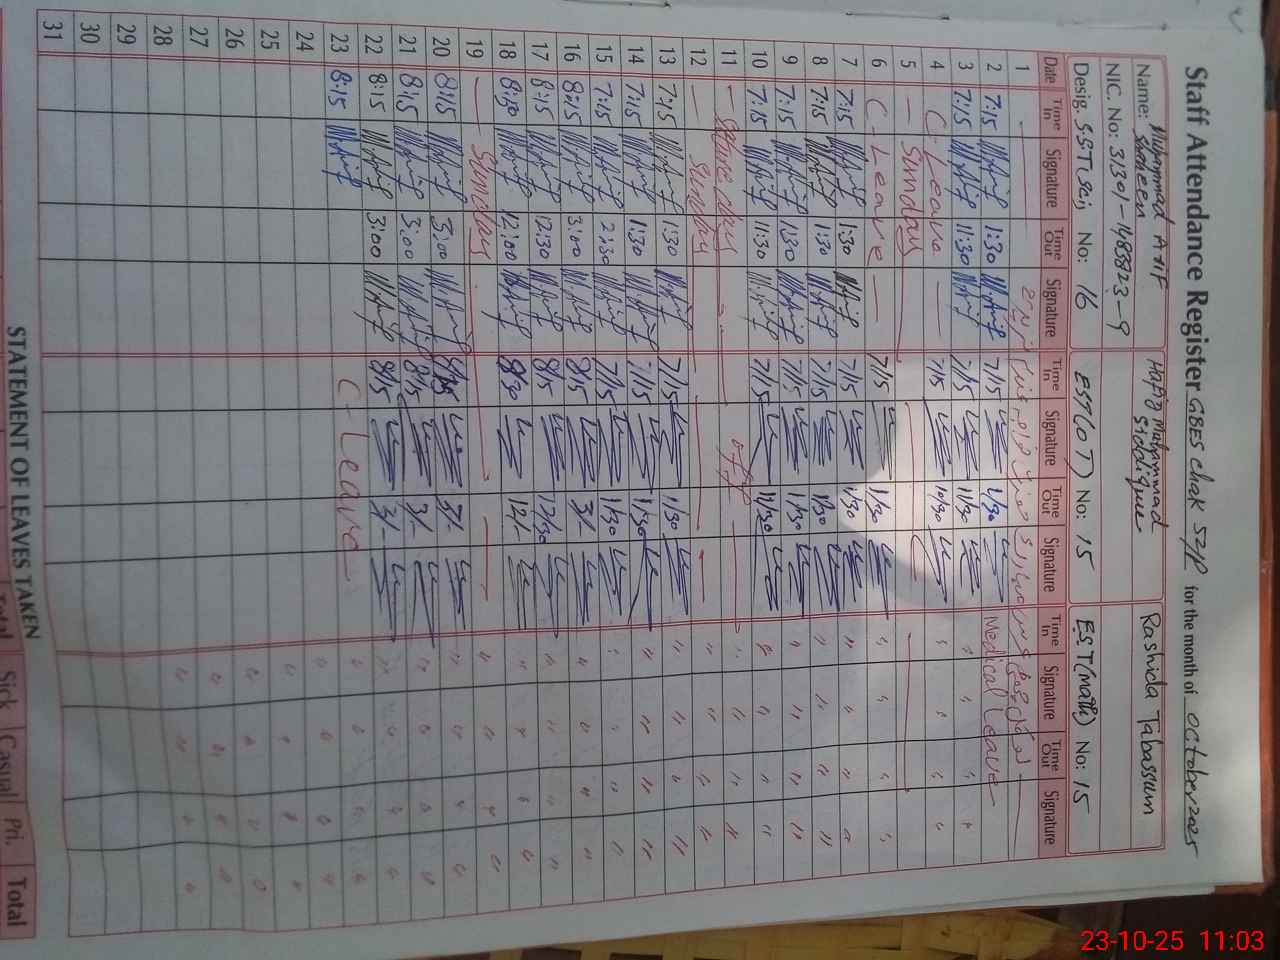 Staff Attendance Register GBES chak 52/P for the month of October 2025
Name: Muhammad Arif Shaheen Hafiz Muhammad Siddique Rashida Tabassum
NIC. No: 31301-1483923-9
Desig. SST(sci) No: 16 EST(OT) No: 15 EST(math) No: 15
Date Time In Signature Time Out Signature Time In Signature Time Out Signature Time In Signature Time Out Signature
1
2 7:15 1:30 7/15 1/30 Medical Leave
3 7:15 11:30 7/15 11/30 " "
4 C-Leave 7/15 10/30 " " " "
5 Sunday
6 C-Leave 7/15 1/30 " " " "
7 7:15 1:30 7/15 1/30 " " " "
8 7:15 1:30 7/15 1/30 " " " "
9 7:15 1:30 7/15 1/30 " " " "
10 7:15 11:30 7/15 11/30 " " " "
11 off " " " "
12 Sunday " " " "
13 7:15 1:30 7/15 1/30 " " " "
14 7:15 1:30 7/15 1/30 " " " "
15 7:15 2:30 7/15 1/30 " " " "
16 8:15 3:00 8/15 3/- " " " "
17 8:15 12:30 8/15 12/30 " " " "
18 8:30 12:00 8/30 12/- " " " "
19 Sunday " " " "
20 8:15 3:00 3/- " " " "
21 8:15 3:00 8/15 3/- " " " "
22 8:15 3:00 8/15 3/- " " " "
23 8:15 C-Leave " " " "
24 " " " "
25 " " " "
26 " " " "
27 " " " "
28 " " " "
29
30
31
STATEMENT OF LEAVES TAKEN
Total Sick Casual Pri. Total
23-10-25 11:03